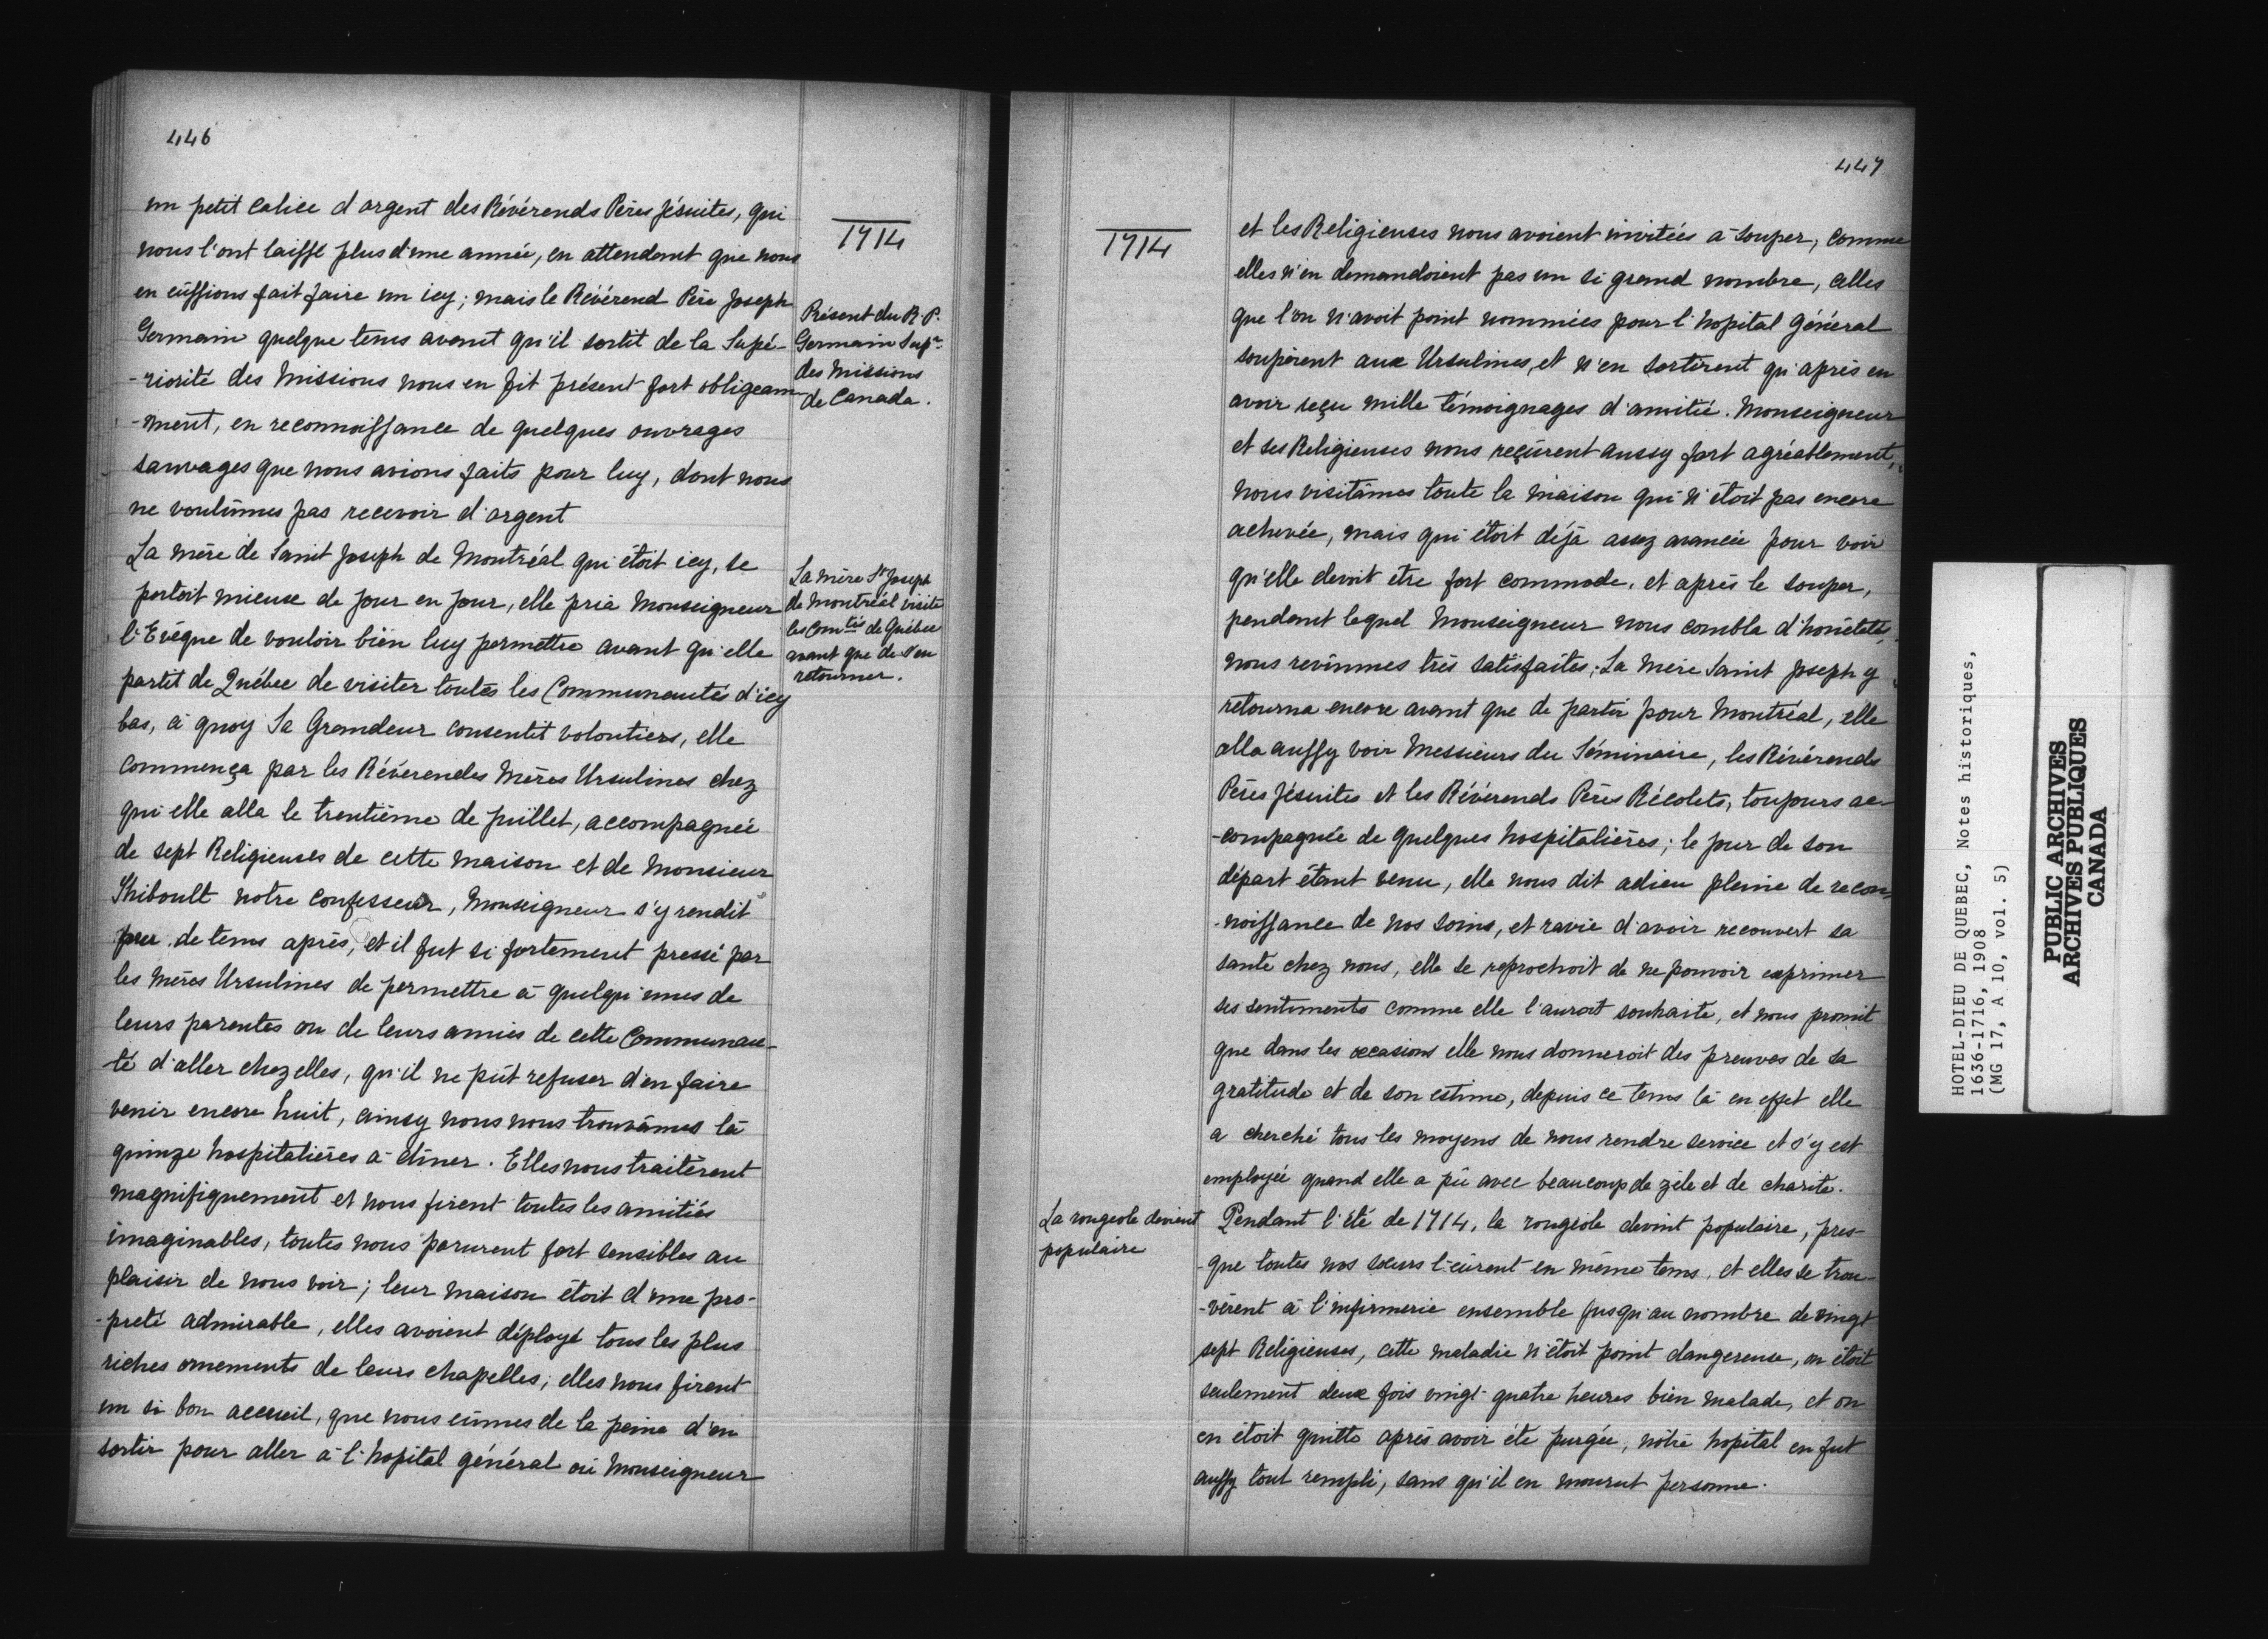 446
un petit calice d'argent des Révérends Pères Jésuites, qui
nous l'ont laissé plus d'une année, en attendant que nous
en eûssions fait faire un icy; mais le Révérend Père Joseph
Germain quelque tems avant qu'il sortit de la Supé-
-riorité des Missions nous en fit présent fort obligeam
-ment, en reconnoissance de quelques ouvrages
sauvages que nous avions faits pour luy, dont nous
ne voulûmes pas recevoir d'argent
La mère de Saint Joseph de Montréal qui étoit icy, se
portoit mieux de jour en jour, elle pria Monseigneur
l'Evêque de vouloir bien luy permettre avant qu'elle
partit de Québec de visiter toutes les Communautés d'icy
bas, à quoy Sa Grandeur consentit volontiers, elle
commença par les Révérendes Mères Ursulines chez
qui elle alla le trentième de juillet, accompagnée
de sept Religieuses de cette maison et de Monsieur
Thiboult notre confesseur, Monseigneur s'y rendit
peu de tems après, et il fut si fortement pressé par
les mères Ursulines de permettre à quelqu'unes de
leurs parentes ou de leurs amies de cette Communau-
té d'aller chez elles, qu'il ne pût refuser d'en faire
venir encore huit, ainsy nous nous trouvâmes là
quinze hospitalières à dîner. Elles nous traitèrent
magnifiquement et nous firent toutes les amitiés
imaginables, toutes nous parurent fort sensibles au
plaisir de nous voir; leur maison étoit d'une pro-
-preté admirable, elles avoient déployé tous les plus
riches ornements de leurs chapelles; elles nous firent
un si bon accueil, que nous eûmes de la peine d'en
sortir pour aller à l'hopital général où Monseigneur
1714
Présent du R. P.
Germain Supr
des Missions
de Canada.
La mère St Joseph
de Montréal visite
les Comtés de Québec
avant que de s'en
retourner.
447
1714
et les Religieuses nous avoient invitées à souper, comme
elles n'en demandoient pas un si grand nombre, celles
que l'on n'avoit point nommées pour l'hopital général
soupèrent aux Ursulines, et n'en sortirent qu'après en
avoir reçu mille témoignages d'amitié. Monseigneur
et ses Religieuses nous reçûrent aussy fort agréablement,
nous visitâmes toute la maison qui n'étoit pas encore
achevée, mais qui étoit déjà assez avancée pour voir
qu'elle devoit être fort commode, et après le souper,
pendant lequel Monseigneur nous combla d'honêtetés
nous revinmes très satisfaites; La Mère Saint Joseph y
retourna encore avant que de partir pour Montréal, elle
alla aussy voir Messieurs du Séminaire, les Révérends
Pères Jésuites et les Révérends Pères Récolets, toujours ac-
-compagnée de quelques hospitalières; le jour de son
départ étant venu, elle nous dit adieu pleine de recon
-noissance de nos soins, et ravie d'avoir recouvert sa
santé chez nous, elle se reprochoit de ne pouvoir exprimer
ses sentiments comme elle l'auroit souhaité, et nous promit
que dans les occasions elle nous donneroit des preuves de sa
gratitude et de son estime, depuis ce tems là en effet elle
a cherché tous les moyens de nous rendre service et s'y est
employée quand elle a pû avec beaucoup de zèle et de charité.
La rougeole devient
populaire
Pendant l'été de 1714, la rougeole devint populaire, pres-
-que toutes nos soeurs l'eûrent en même tems, et elles se trou-
-vèrent à l'infirmerie ensemble jusqu'au nombre de vingt
sept Religieuses, cette maladie n'étoit point dangereuse, on étoit
seulement deux fois vingt-quatre heures bien malade, et on
en étoit quitte après avoir été purgée, nôtre hopital en fut
aussy tout rempli, sans qu'il en mourut personne.
HOTEL-DIEU DE QUEBEC, Notes historiques,
1636-1716, 1908
(MG 17, A 10, vol. 5)
PUBLIC ARCHIVES
ARCHIVES PUBLIQUES
CANADA